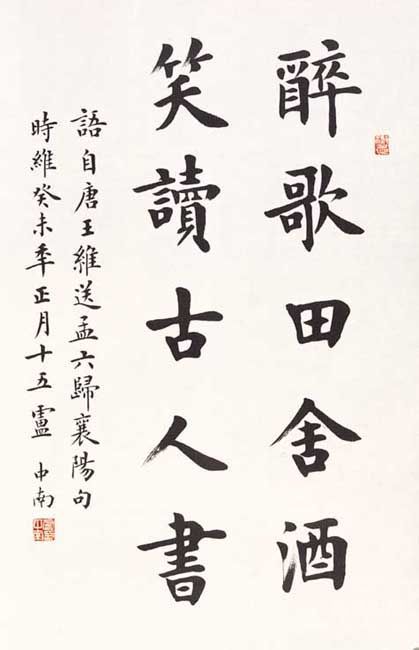 醉歌田舍酒
笑讀古人書
語自唐王維送孟六歸襄陽句
時維癸未年正月十五盧中南